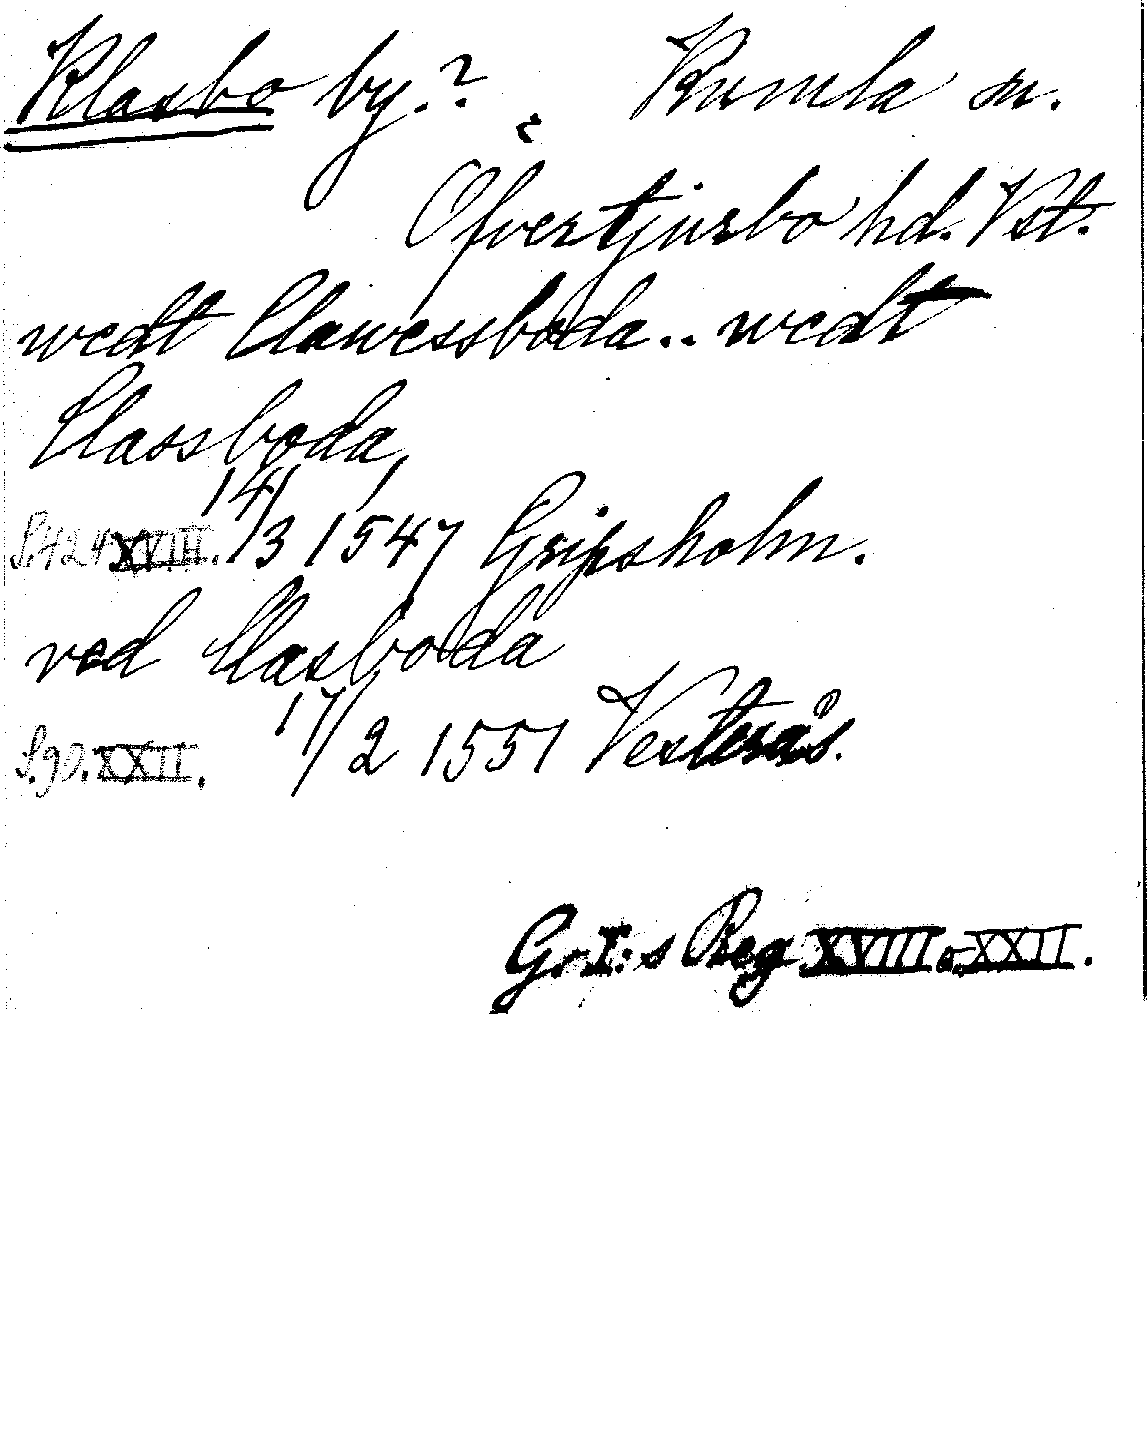 Klasbo by.? Kumla sn.
Ofvertjurbo hd. Vst.
wedt Clawessboda.. wedt
Classboda,
S.424 XVIII. 14/3 1547 Gripsholm.
ved Clasboda
S.90. XXII. 17/2 1551 Vesterås.
G. I:s Reg XVIII o. XXII.